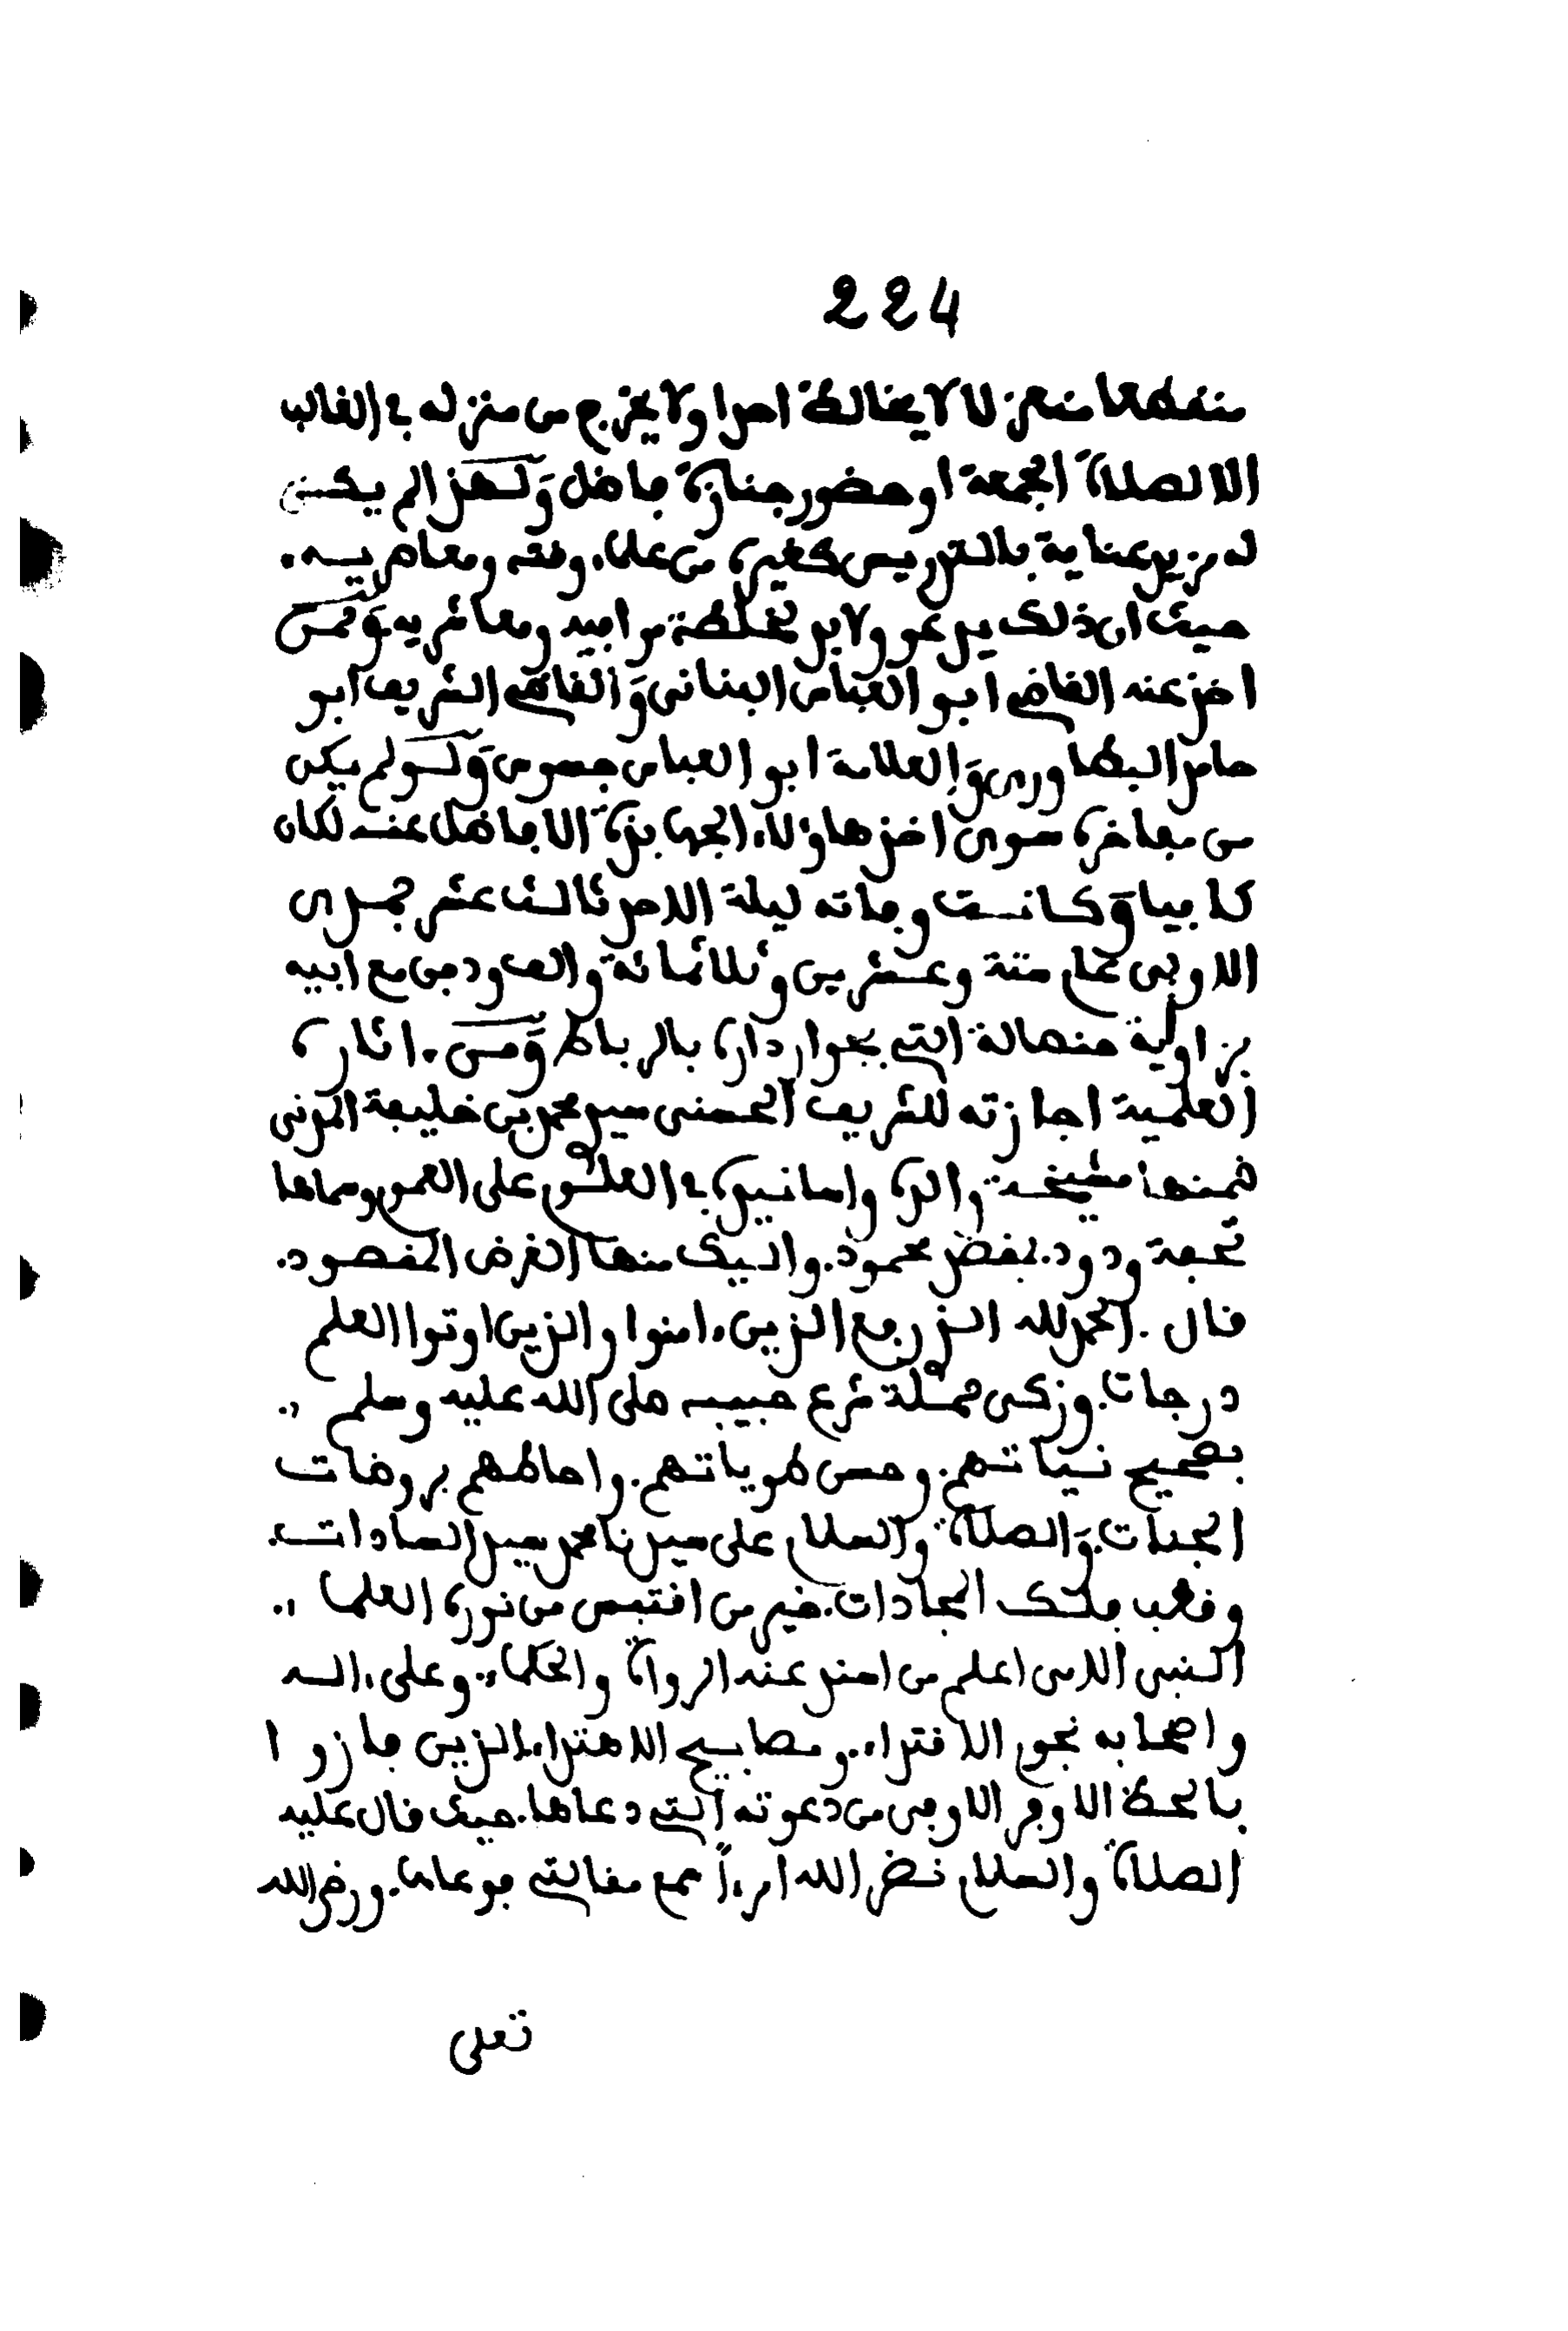 224
منقطعا منعزلا لا يخالط احدا ولا يخرج من منزله في الغالب
الا لصلاة الجمعة او حضور جنازة فاضل ولهذا لم يكن
له مزيد عناية بالتدريس كغيره من علماء وقته ومعاصريه.
حيث ان ذلك يدعو ولابد لخلطة مرابيد ومعاشريه وممن
اخذ عنه القاضي ابو العباس البناني والقاضي الشريف ابو
حامد البطاوري والعلامة ابو العباس جسوس ولو لم يكن
من مفاخره سوى اخذ هاؤلاء الجهابذة الافاضل عنه لكان
كافيا وكانت وفاته ليلة الاحد ثالث عشر جمدى
الاولى عام ستة وعشرين وثلاثمائة والف ودفن مع ابيه
بزاوية منصالة التي بجوار داره بالرباط ومن ءاثاره
العلمية اجازته للشريف الحسني سيد محمد بن خليفة المدني
ضمنها مشيخة والده واسانيده في العلوم على العموم وسماها
تحفة ودود. بفضل محمود. واليك منها الغرض المقصود.
قال. الحمد لله الذي رفع الذين ءامنوا والذين اوتوا العلم
درجات. وزكى حملة شرع حبيبه صلى الله عليه وسلم ..
بصحيح نياتهم. وحسن طوياتهم. واحاطهم بروضات
الجنات. والصلاة والسلام على سيدنا محمد سيد السادات.
وقطب فلك المجادات. خير من اقتبس من نوره العلما ..
النبي الامي اعلم من اسند عنه الرواة والحكماء.. وعلى ءاله
واصحابه نجوم الاقتداء.. ومصابيح الاهتداء. الذين فازوا
بالحظ الاوفر الاوفى من دعوته التي دعاها. حيث قال عليه
الصلاة والسلام نضر الله امرءا سمع مقالتي فوعاها. ورضي الله
تعلى